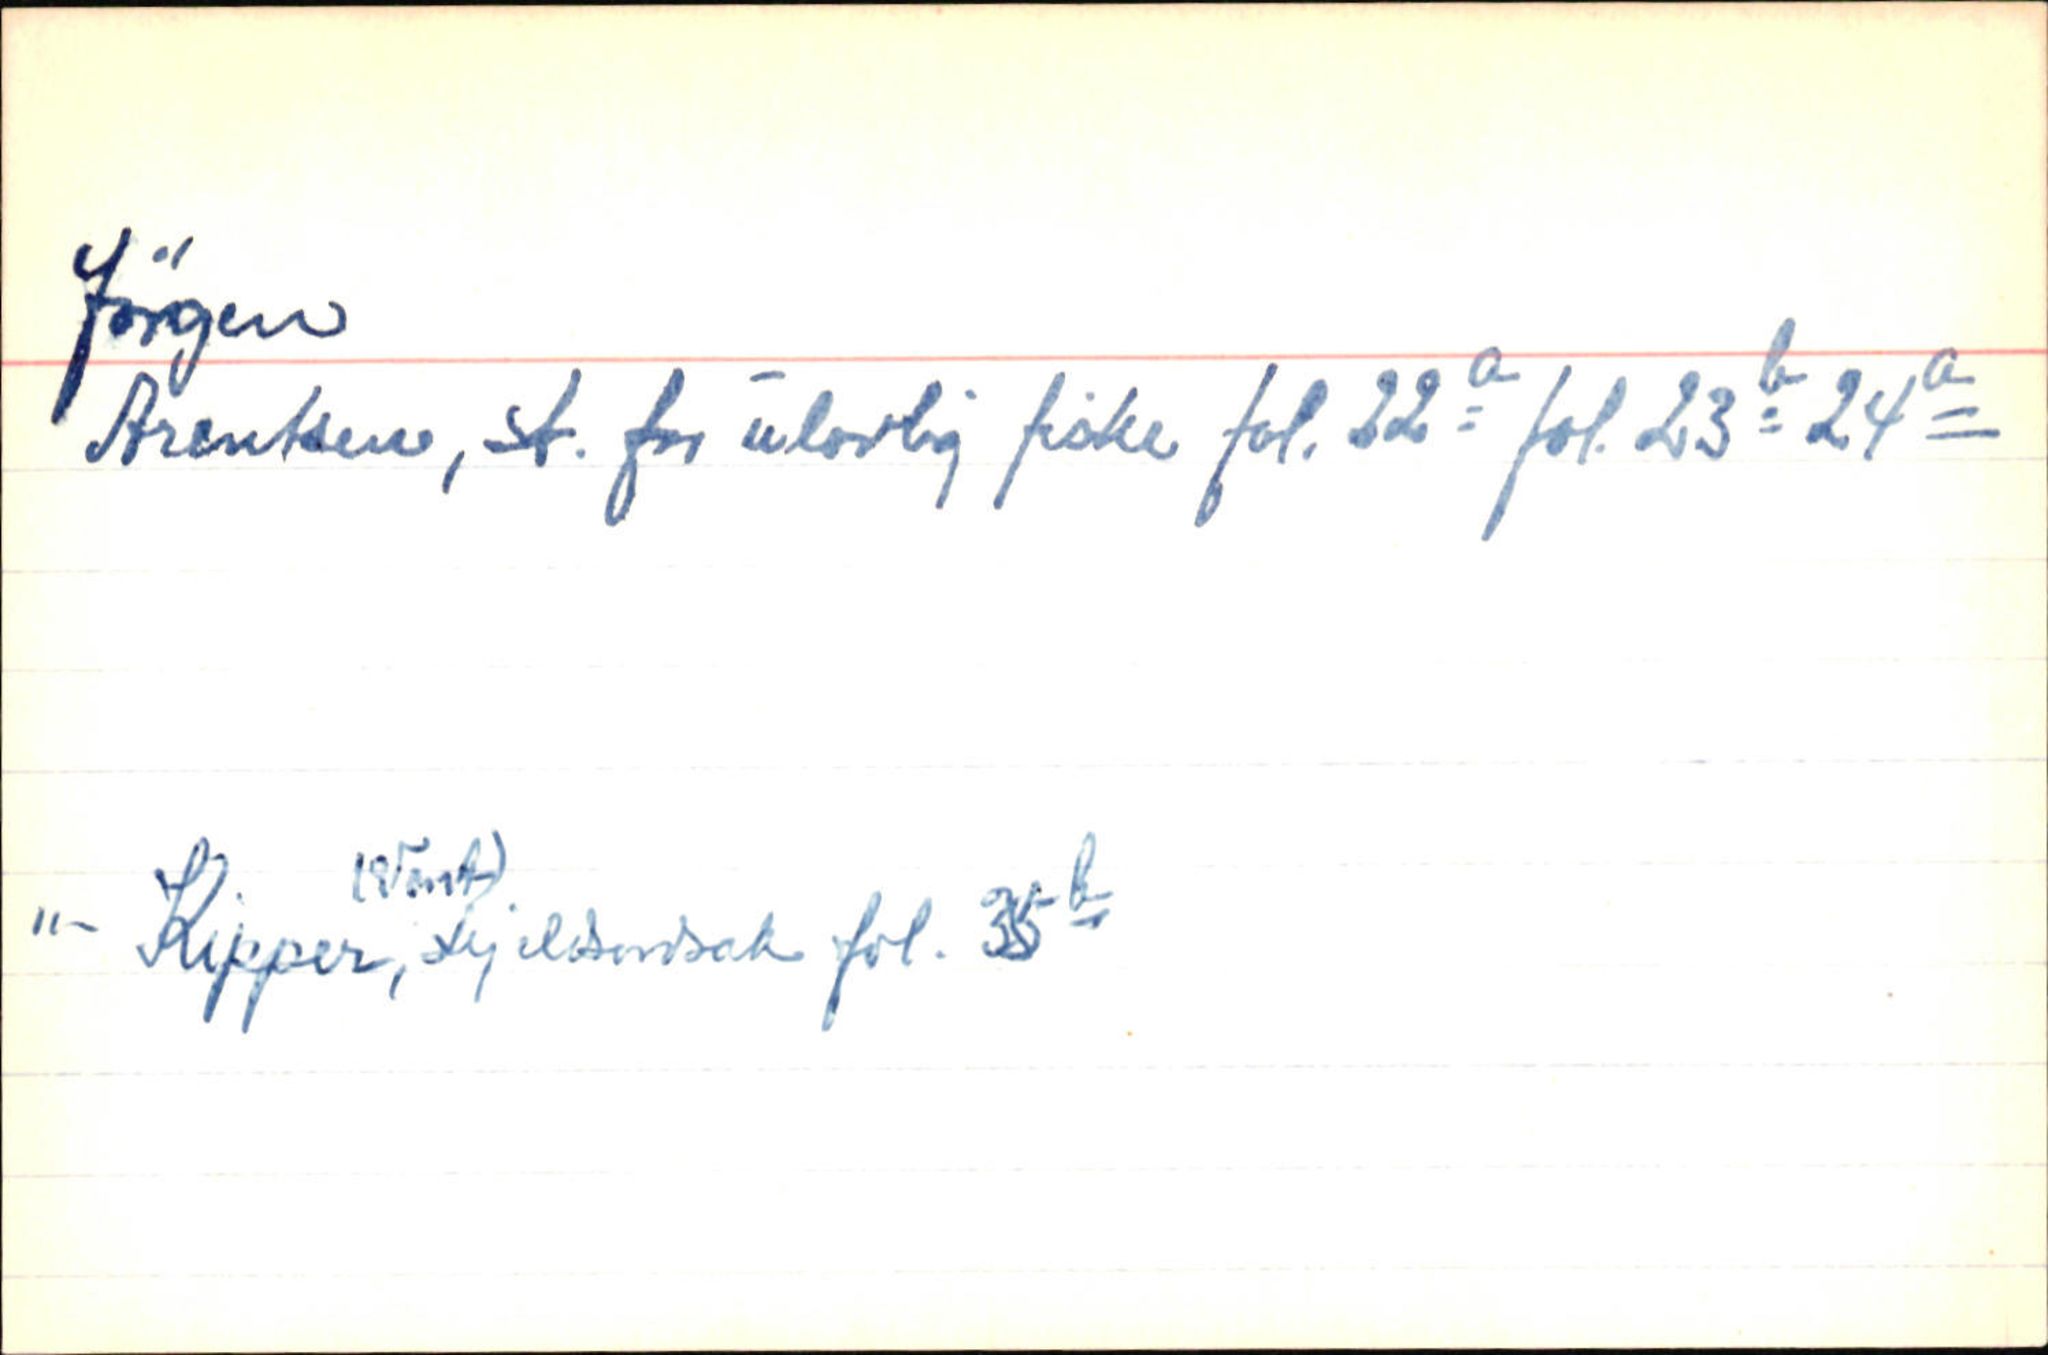 Jörgen
Arentsen, st. for ulovlig fiske fol. 22a fol. 23b 24a
"- Kipper, skjeldsordsak fol. 35b